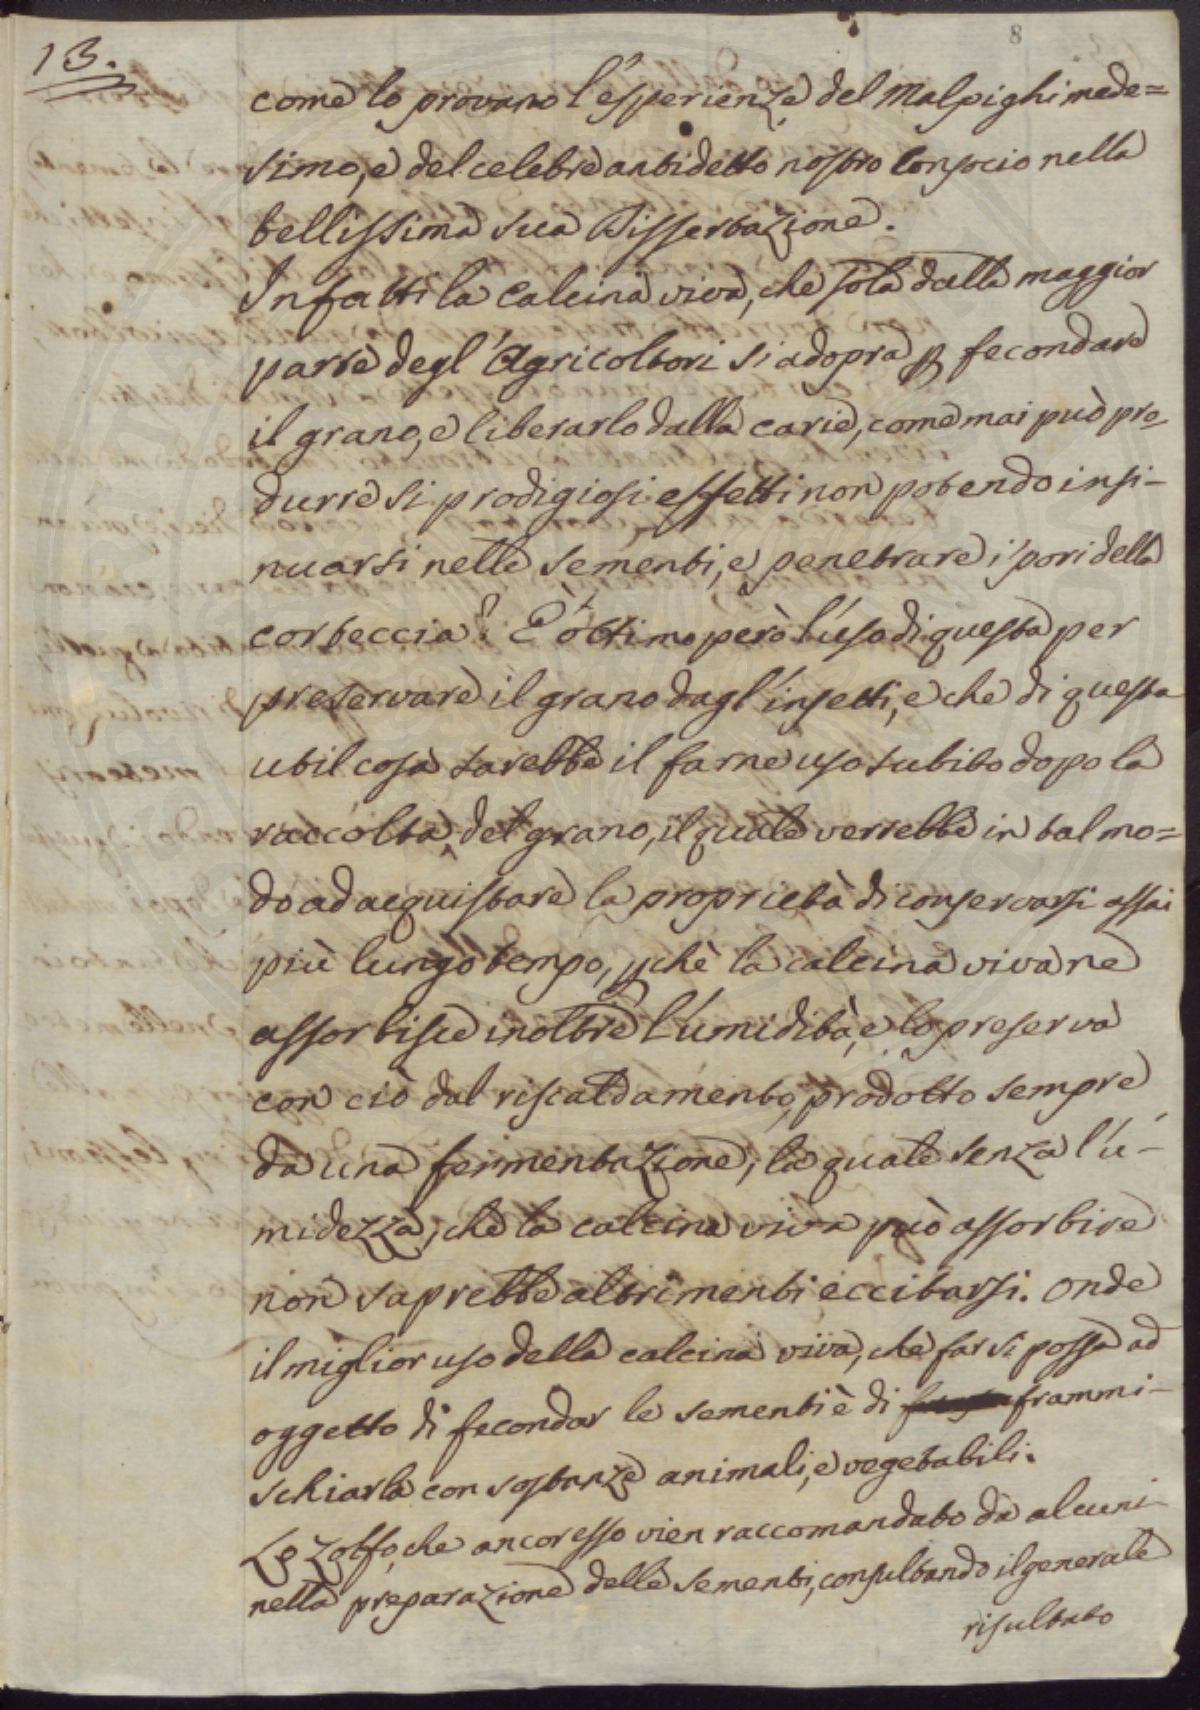 13.
8
come lo provano l'esperienze del Malpighi mede=
simo, e del celebre antidetto nostro Consocio nella
bellissima sua Dissertazione.
Infatti la calcina viva, che sola dalla maggior
parte degl'Agricoltori si adopra p fecondare
il grano, e liberarlo dalla carie, come mai può pro-
durre si prodigiosi effetti non potendo insi-
nuarsi nelle sementi, e penetrare i pori della
corteccia? È ottimo però l'uso di questa per
preservare il grano dagl'insetti, e che di questa
util cosa sarebbe il farne uso subito dopo la
raccolta del grano, il quale verrebbe in tal mo=
do ad acquistare la proprietà di conservarsi assai
più lungo tempo, pchè la calcina viva ne
assorbisce inoltre l'umidità, e lo preserva
con ciò dal riscaldamento, prodotto sempre
da una fermentazione, la quale senza l'u-
midezza, che la calcina viva può assorbire
non saprebbe altrimenti eccitarsi. Onde
il miglior uso della calcina viva, che far si possa ad
oggetto di fecondar le sementi è di frammi-
schiarla con sostanze animali, e vegetabili.
Lo Zolfo, che ancor esso vien raccomandato da alcuni
nella preparazione delle sementi, consultando il generale
risultato